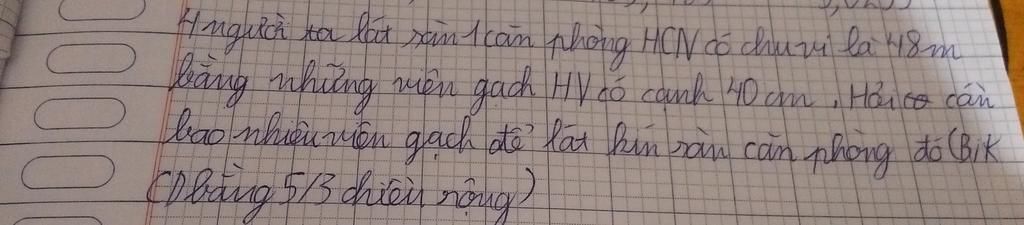 4 người ta lát sàn 1 căn phòng HCN có chu vi là 48m
bằng những viên gạch HV có cạnh 40 cm. Hỏi cần
bao nhiêu viên gạch để lát kín sàn căn phòng đó (Bik
CD bằng 5/3 chiều rộng)